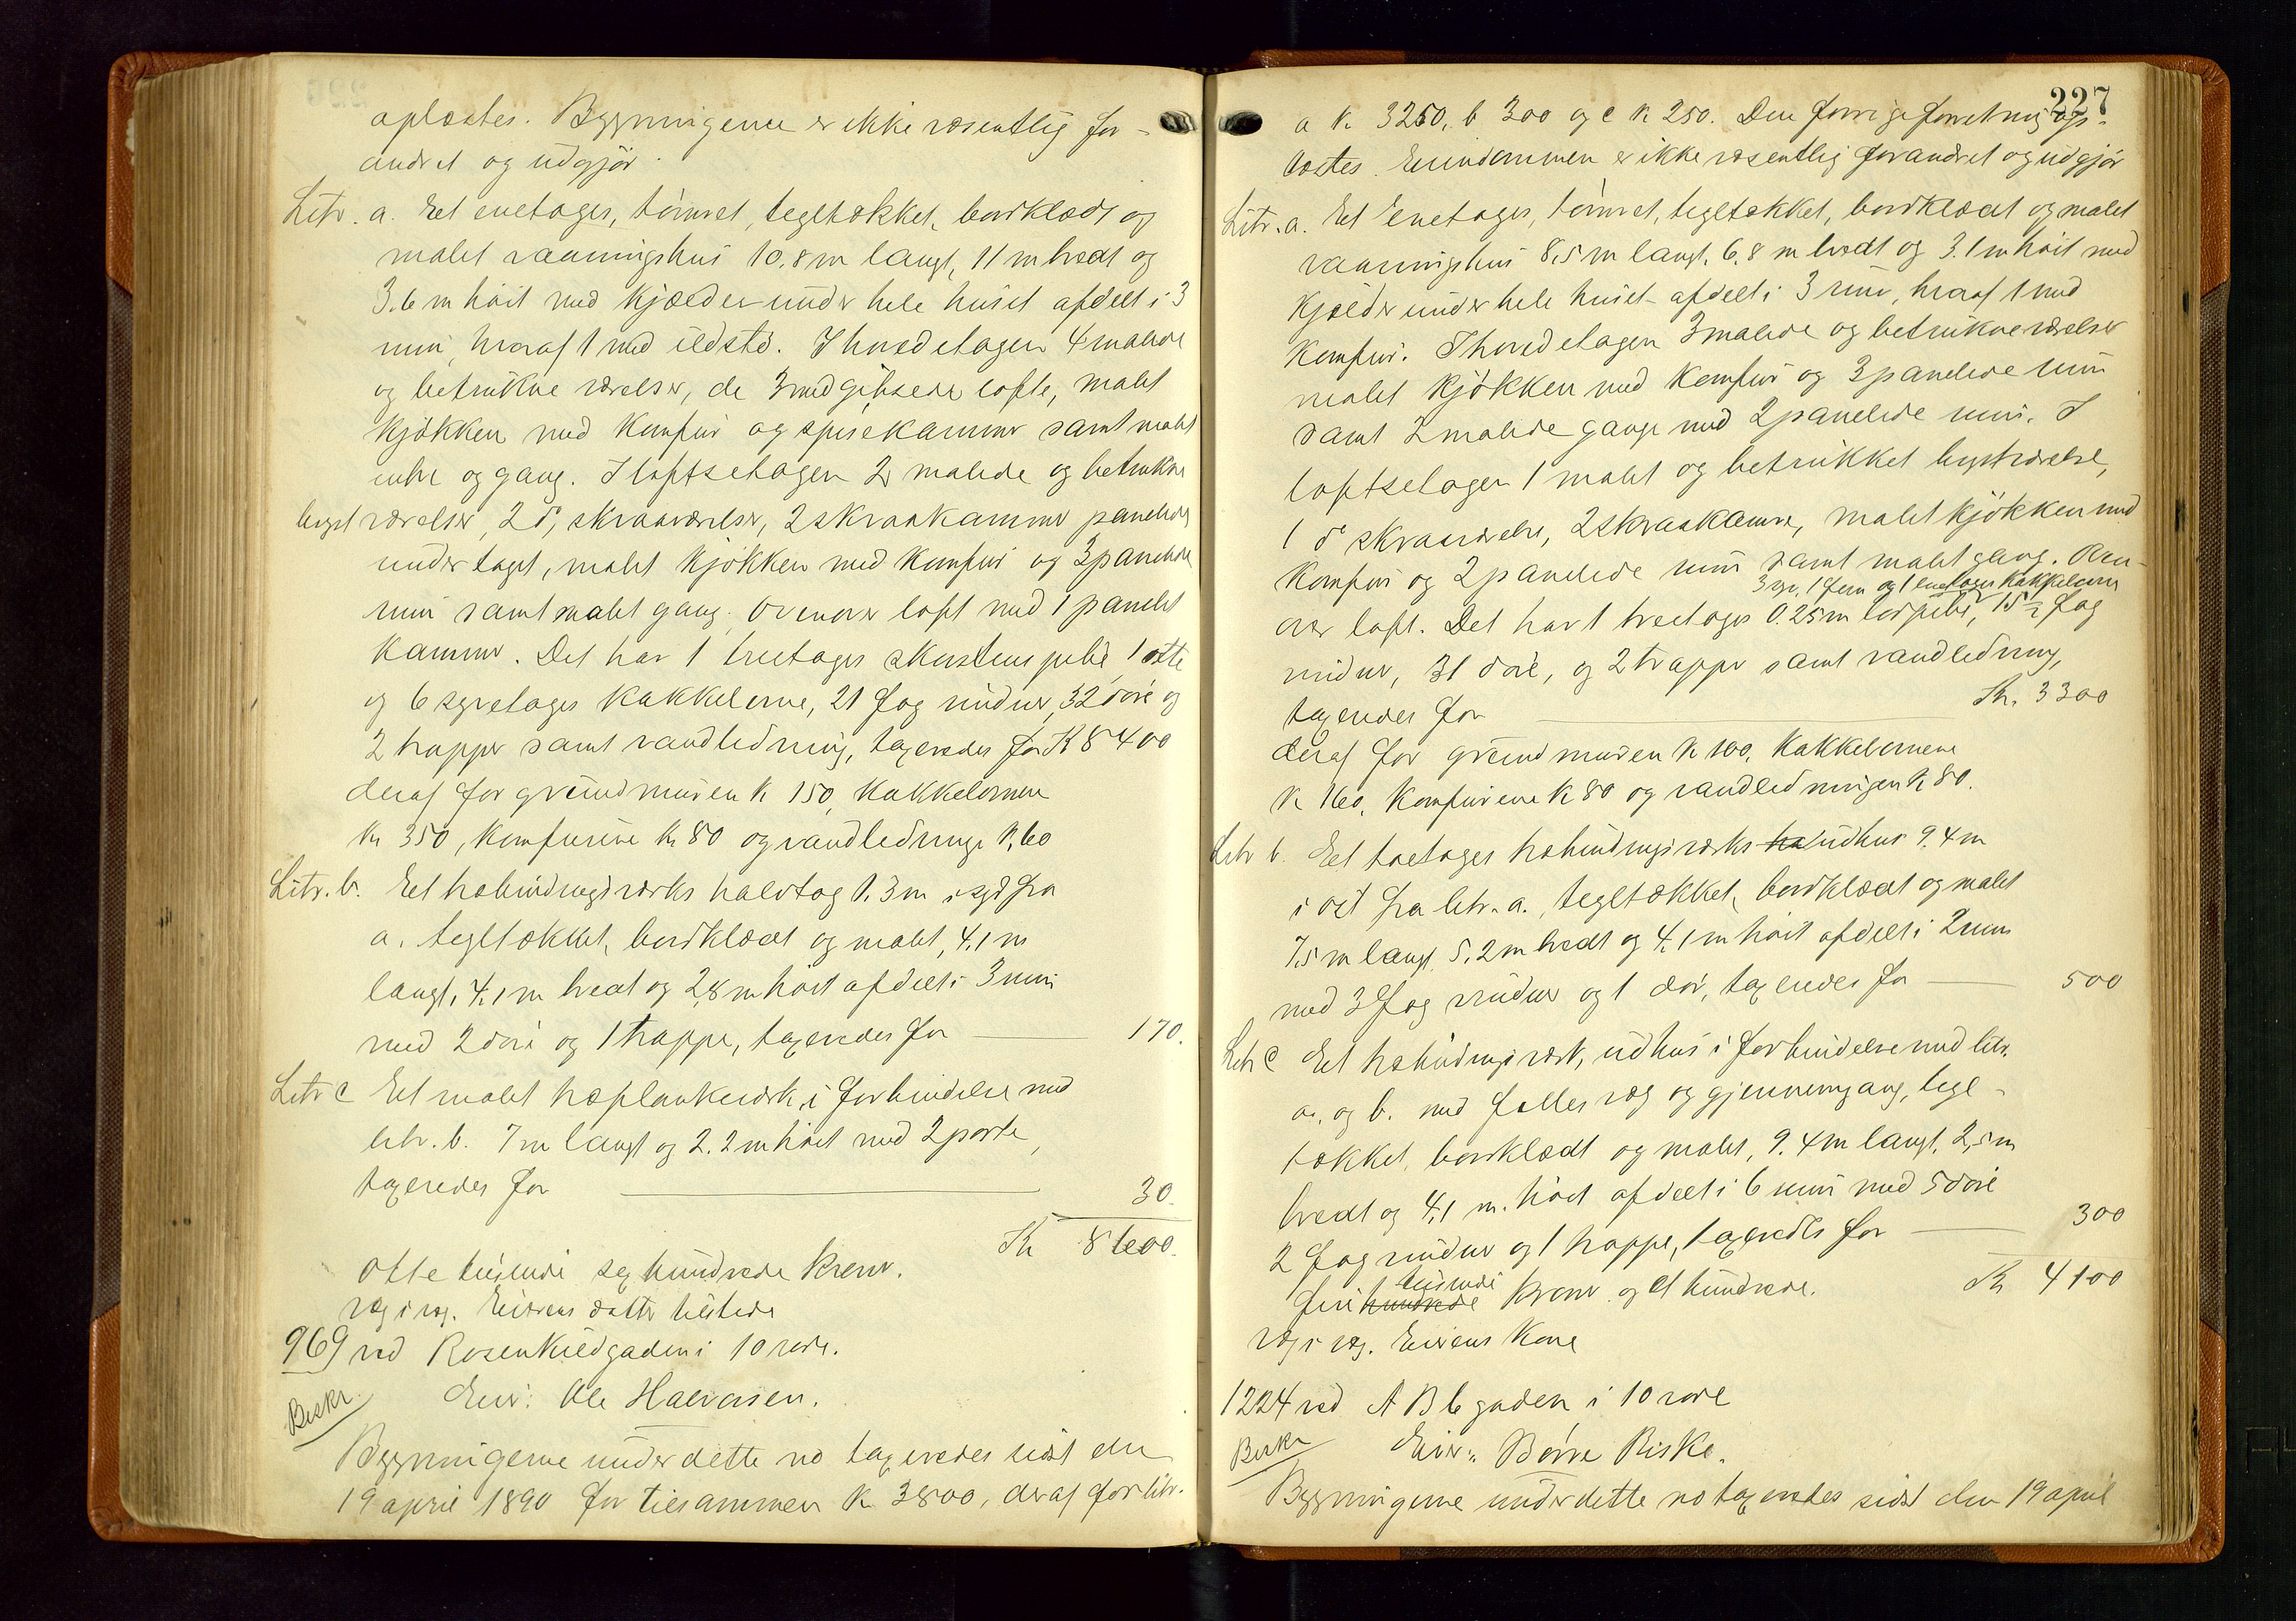 oplæstes. Bygningerne er ikke væsentlig for-
andret og udgjør.
Litr. a. Eet eenetages, tømret, tegltækket, bordklædt og
malet vaaningshus 10,8 m langt, 11 m bredt og
3.6 m høit med kjælder under hele huset afdelt i 3
rum, hvoraf 1 med ildsted. I hovedetagen 4 malede
og betrukne værelser, de 3 med gibsede lofte, malet
kjøkken med komfur og spisekammer samt malet
entre og gang. I loftsetagen 2 malede og betrukne
kvistværelser, 2 do skraaværelser, 2 skraakammer panelede
under taget, malet kjøkken med komfur og 3 panelede
rum samt malet gang. Ovenover loft med 1 panelet
kammer. Det har 1 treetages skorstenspibe, 1 otte
og 6 syvetages kakkelovne, 21 fag vinduer, 32 døre og
2 trapper samt vandledning, taxeredes for K 8400
deraf for grundmuren K 150, kakkelovnene
K 350, komfurene K 80 og vandledninge K 60
Litr. b. Eet halvbindingsværks halvtag 1.3 m i syd fra
a. tegltækket, bordklædt og malet, 4,1 m
langt, 4,1 m bredt og 2,8 m høit afdelt i 3 rum
med 2 døre og 1 trappe, taxeredes for 170.
Litr c Eet malet træplankeværk, i forbindelse med
litr. b. 7 m langt og 2.2 m høit med 2 porte,
taxeredes for 30.
K 8600.
Otte tusinde sex hundrede kroner.
Eierens datter tilstede
969 ved Rosenkildgaden i 10 rode.
Beskr. Eier: Ole Halvorsen.
Bygningerne under dette no taxeredes sidst den
19 april 1890 for tilsammen K 3800, deraf for litr.
227
a K 3250, b 300 og c K 250. Den forrige forretning op-
læstes. Eiendommen er ikke væsentlig forandret og udgjør
Litr. a. Eet eenetages, tømret, tegltækket, bordklædt og malet
vaaningshus 8,5 m langt, 6,8 m bredt og 3.1 m høit med
kjælder under hele huset afdelt i 3 rum, hvoraf 1 med
komfur. I hovedetagen 3 malede og betrukne værelser
malet kjøkken med komfur og 3 panelede rum
samt 2 malede gange med 2 panelede rum. I
loftsetagen 1 malet og betrukket kvistværelse,
1 do skraaværelse, 2 skraakamre, malet kjøkken med
komfur og 2 panelede rum samt malet gang. Oven-
3 syv, 1 fem og 1 enetages kakkelovne
over loft. Det har 1 treetages 0.25 m pibe, 15 ½ fag
vinduer, 31 døre, og 2 trapper samt vandledning,
taxeredes for K. 3300
deraf for grundmuren K 100, kakkelovnene
K 160, komfurene K 80 og vandledningen K 80.
Litr b. Eet toetages halvbindingsværks udhus 9.4 m
i øst fra litr. a., tegltækket, bordklædt og malet
7,5 m langt, 5,2 m bredt og 4,1 m høit afdelt i 2 rum
med 3 fag vinduer og 1 dør, taxeredes for 500
Litr c Eet halvbindingsværk, udhus i forbindelse med litr.
a. og b. med fælles væg og gjennemgang, tegl-
tækket, bordklædt og malet, 9.4 m langt, 2,5 m
bredt og 4,1 m. høit afdelt i 6 rum med 5 døre
2 fag vinduer og 1 trappe, taxeredes for 300
fire hundrede tusinde kroner og et hundrede. K 4100
Eierens kone
1224 ved A B 6 gaden i 10 rode
Beskr Eier: Børre Riske.
Bygningerne under dette no taxeredes sidst den 19 april